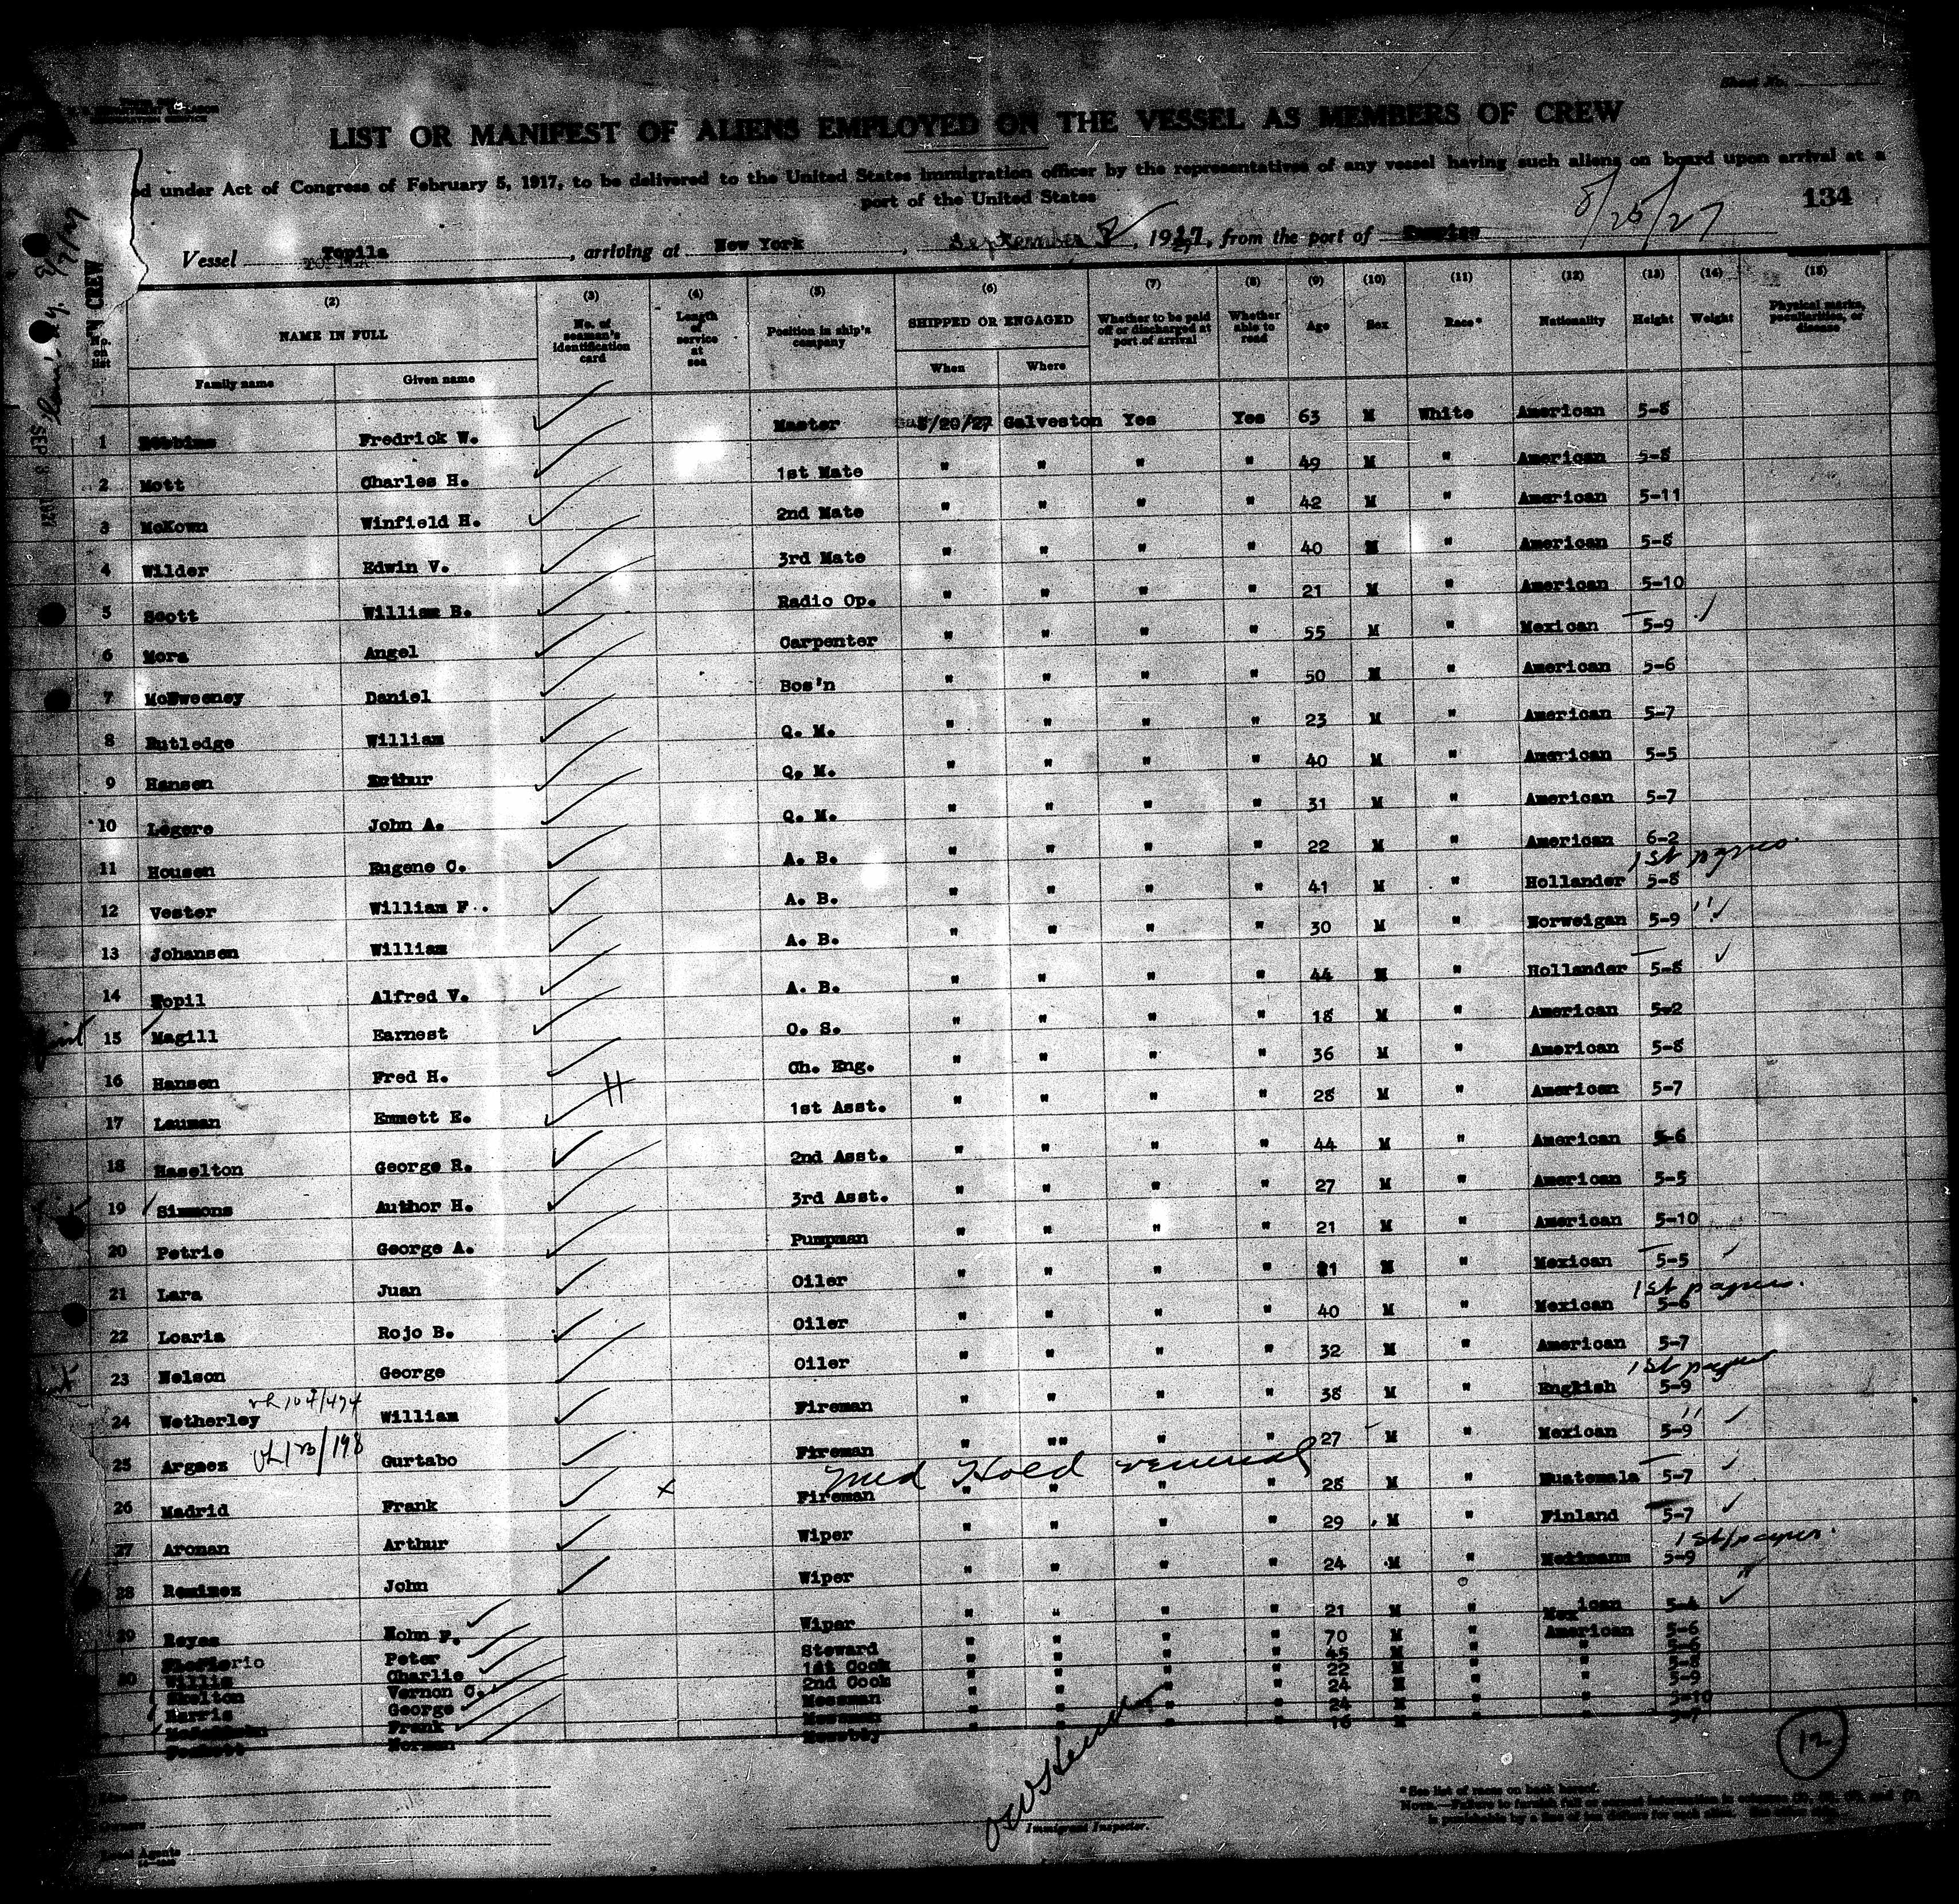 Sheet No.
LIST OR MANIFEST OF ALIENS EMPLOYED ON THE VESSEL AS MEMBERS OF CREW
ed under Act of Congress of February 5, 1917, to be delivered to the United States immigration officer by the representatives of any vessel having such aliens on board upon arrival at a
port of the United States
8/25/27
134
Vessel Topila, arriving at New York, September 8, 1927, from the port of
(2) (3) (4) (5) (6) (7) (8) (9) (10) (11) (12) (13) (14) (15)
No. on list
NAME IN FULL
Family name Given name
No. of seaman's identification card
Length of service at sea
Position in ship's company
SHIPPED OR ENGAGED
When Where
Whether to be paid off or discharged at port of arrival
Whether able to read
Age Sex Race* Nationality Height Weight
Physical marks, peculiarities, or disease
1 Robbins Fredrick W. Master 8/20/27 Galveston Yes Yes 63 M White American 5-8
2 Mott Charles H. 1st Mate " " " " 49 M " American 5-8
3 McKown Winfield H. 2nd Mate " " " " 42 M " American 5-11
4 Wilder Edwin V. 3rd Mate " " " " 40 M " American 5-8
5 Scott William B. Radio Op. " " " " 21 M " American 5-10
6 Mora Angel Carpenter " " " " 55 M " Mexican 5-9
7 McSweeney Daniel Bos'n " " " " 50 M " American 5-6
8 Rutledge William Q. M. " " " " 23 M " American 5-7
9 Hansen Arthur Q. M. " " " " 40 M " American 5-5
10 Legere John A. Q. M. " " " " 31 M " American 5-7
11 Housen Eugene C. A. B. " " " " 22 M " American 6-2
1st papers.
12 Vester William F.. A. B. " " " " 41 M " Hollander 5-8
13 Johansen William A. B. " " " " 30 M " Norweigan 5-9 "
14 Topil Alfred V. A. B. " " " " 44 M " Hollander 5-8
15 Magill Earnest O. S. " " " " 18 M " American 5-2
16 Hansen Fred H. Ch. Eng. " " " " 36 M " American 5-8
17 Lauman Emmett E. H 1st Asst. " " " " 28 M " American 5-7
18 Haselton George R. 2nd Asst. " " " " 44 M " American 5-6
19 Simmons Author H. 3rd Asst. " " " " 27 M " American 5-5
20 Petrie George A. Pumpman " " " " 21 M " American 5-10
21 Lara Juan Oiler " " " " 21 M " Mexican 5-5
1st papers.
22 Loaria Rojo B. Oiler " " " " 40 M " Mexican 5-6
23 Nelson George Oiler " " " " 32 M " American 5-7
1st papers
24 Wetherley William Fireman " " " " 38 M " English 5-9
25 Argaez Gurtabo Fireman " "" " " 27 M " Mexican 5-9 "
Med Hold venereal
26 Madrid Frank X Fireman " " " " 28 M " Guatemala 5-7
27 Aronan Arthur Wiper " " " " 29 M " Finland 5-7
1st papers.
28 Reminez John Wiper " " " " 24 M " 5-9
29 Reyes John F. Wiper " " " " 21 M " Mexican 5-4
Peter Steward " " " " 70 M " American 5-6
30 Willis Charlie 1st Cook " " " " 45 M " " 5-6
Skelton Vernon C. 2nd Cook " " " " 22 M " "
Harris George Messman " " " " 24 M " " 5-9
Frank Messman " " " " 24 M " " 5-10
Norman Messboy " " " " 16 M " " 5-7
12
Immigrant Inspector.
* See list of races on back hereof.
Owners
Local Agents